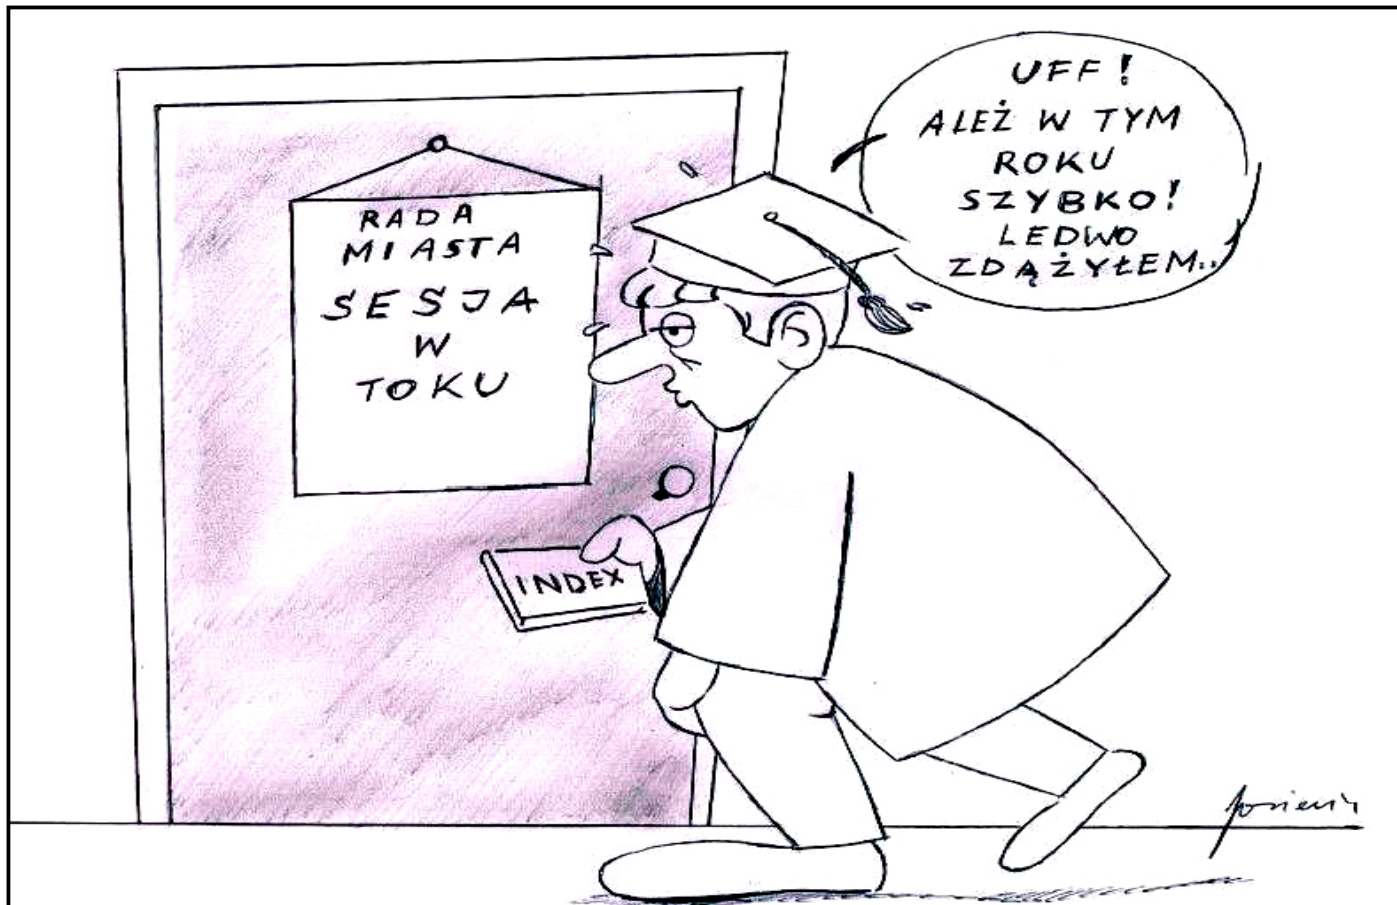 RADA
MIASTA
SESJA
W
TOKU
UFF!
ALEŻ W TYM
ROKU
SZYBKO!
LEDWO
ZDĄŻYŁEM..
INDEX